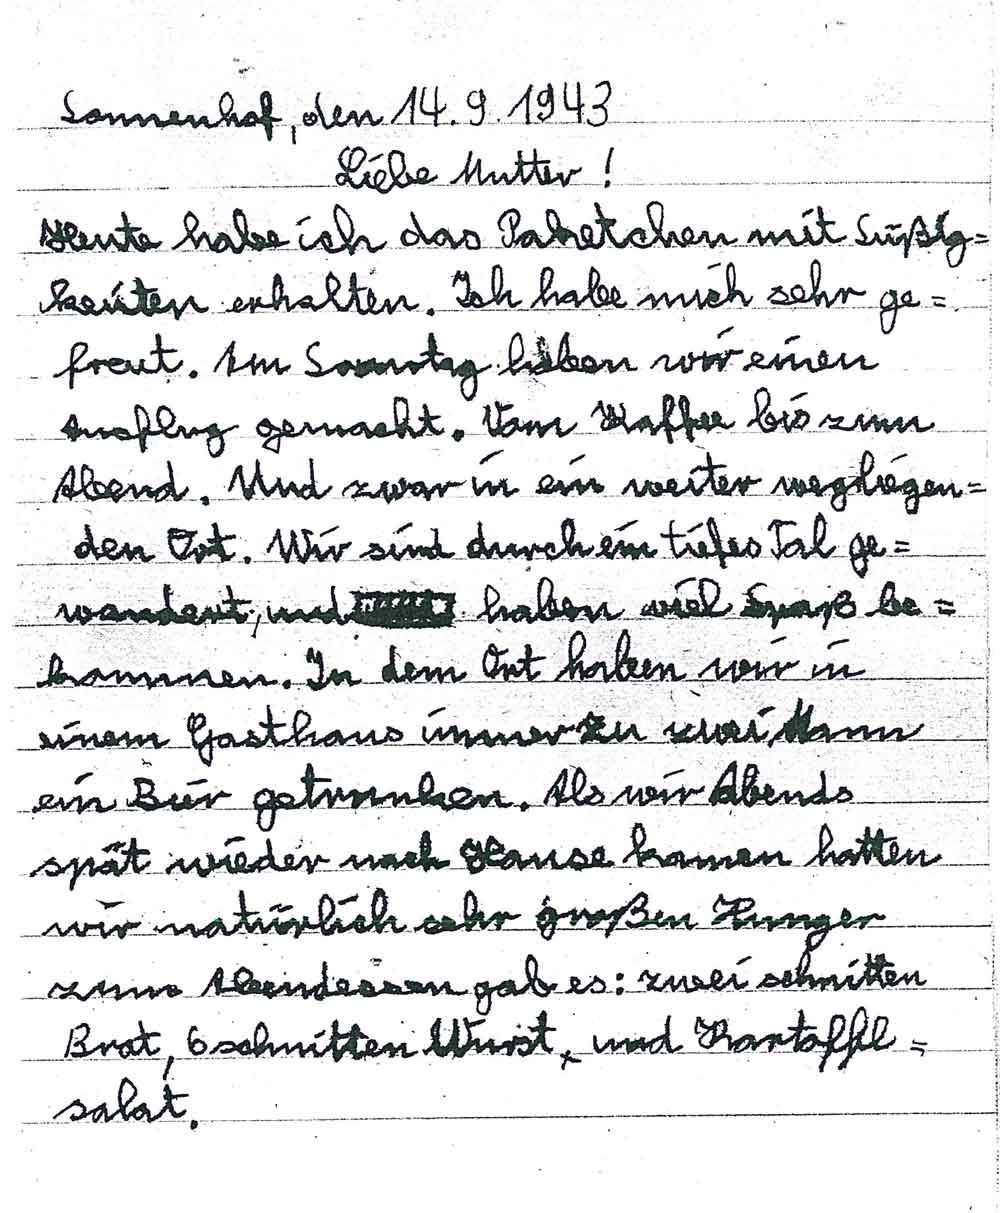 Sonnenhof, den 14.9.1943
Liebe Mutter!
Heute habe ich das Paketchen mit Süßig=
keiten erhalten. Ich habe mich sehr ge=
freut. Am Sonntag haben wir einen
Ausflug gemacht. Vom Kaffee bis zum
Abend. Und zwar in ein weiter wegliegen=
den Ort. Wir sind durch ein tiefes Tal ge=
wandert, und haben viel Spaß be=
kommen. In dem Ort haben wir in
einem Gasthaus immer zu zwei Mann
ein Bier getrunken. Als wir Abends
spät wieder nach Hause kamen hatten
wir natürlich sehr großen Hunger
zum Abendessen gab es: zwei schnitten
Brot, 6 schnitten Wurst, und Kartoffel=
salat.